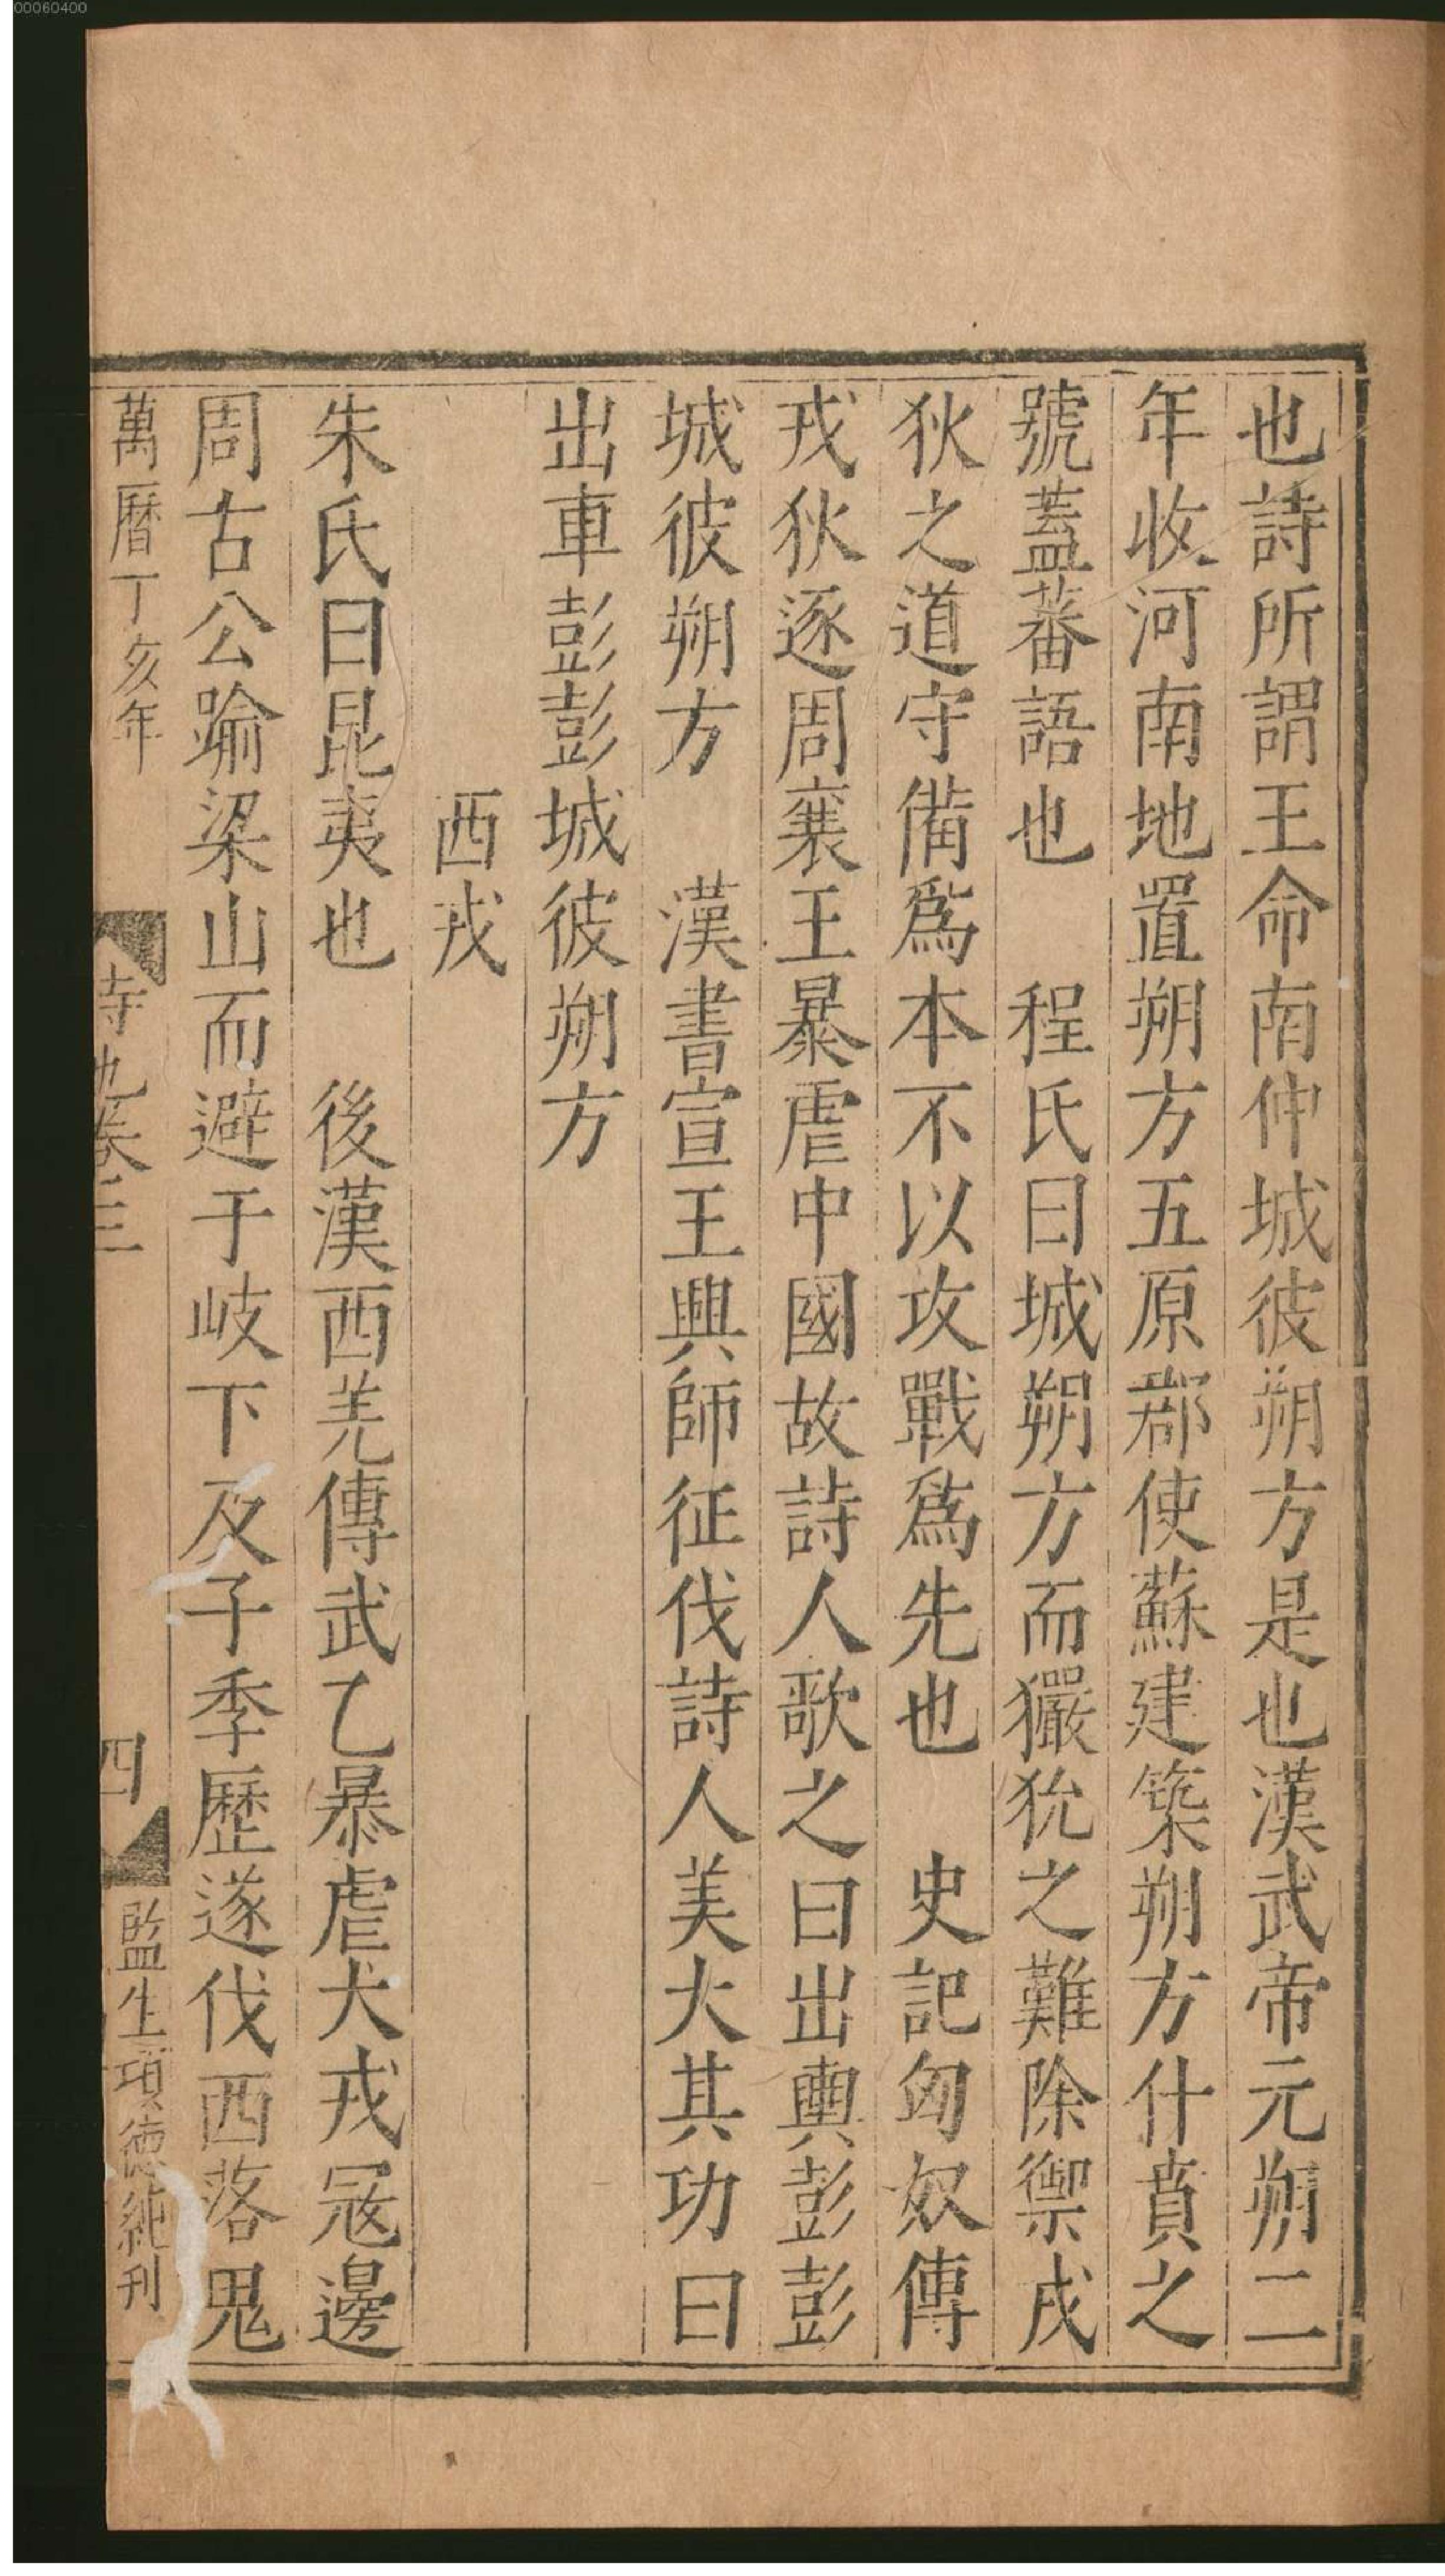 00060400
也詩所謂王命南仲城彼朔方是也漢武帝元朔二
年收河南地置朔方五原郡使蘇建築朔方什賁之
號蓋蕃語也　程氏曰城朔方而玁狁之難除禦戎
狄之道守備爲本不以攻戰爲先也　史記匈奴傳
戎狄逐周襄王暴虐中國故詩人歌之曰出輿彭彭
城彼朔方　漢書宣王興師征伐詩人美大其功曰
出車彭彭城彼朔方
西戎
朱氏曰昆夷也　後漢西羌傳武乙暴虐犬戎冦邊
周古公踰梁山而避于岐下及子季歷遂伐西落鬼
萬曆丁亥年
卷三
四
監生項德純刊